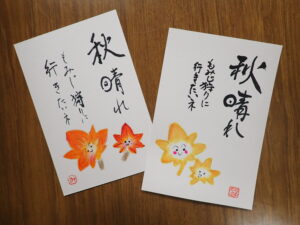 秋晴れ
もみじ狩りに
行きたいネ
秋晴れ
もみじ狩りに
行きたいネ